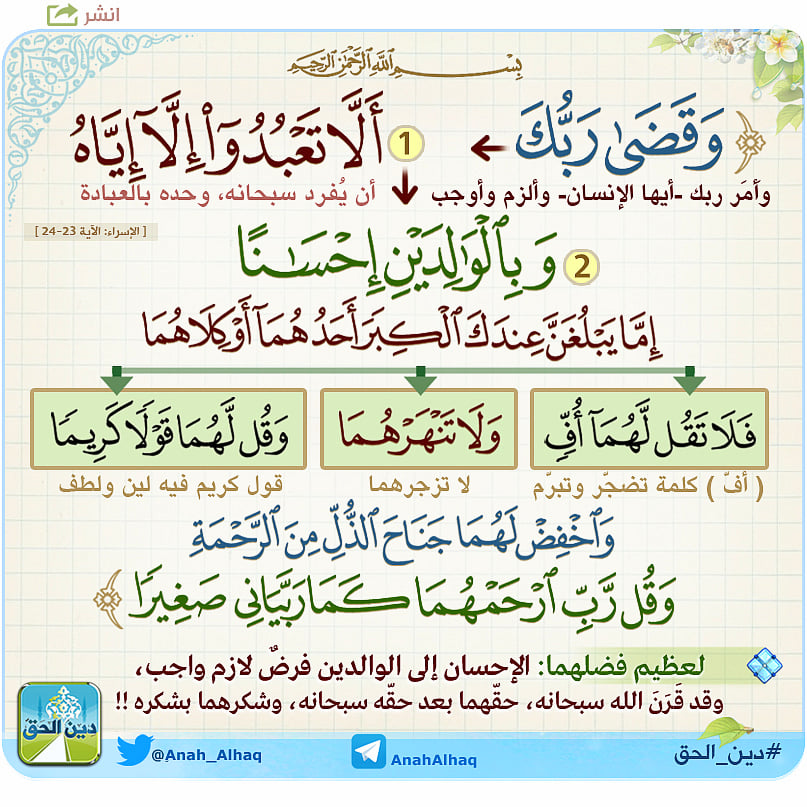 انشر
بِسْمِ اللَّهِ الرَّحْمَٰنِ الرَّحِيمِ
﴿ وَقَضَىٰ رَبُّكَ ← 1 أَلَّا تَعْبُدُوٓا۟ إِلَّآ إِيَّاهُ
وأمَر ربك -أيها الإنسان- وألزم وأوجب ↓ أن يُفرد سبحانه، وحده بالعبادة
[ الإسراء: الآية 23-24 ]
2 وَبِٱلْوَٰلِدَيْنِ إِحْسَٰنًا
إِمَّا يَبْلُغَنَّ عِندَكَ ٱلْكِبَرَ أَحَدُهُمَآ أَوْ كِلَاهُمَا
فَلَا تَقُل لَّهُمَآ أُفٍّ
وَلَا تَنْهَرْهُمَا
وَقُل لَّهُمَا قَوْلًا كَرِيمًا
( أفّ ) كلمة تضجّر وتبرّم
لا تزجرهما
قول كريم فيه لين ولطف
وَٱخْفِضْ لَهُمَا جَنَاحَ ٱلذُّلِّ مِنَ ٱلرَّحْمَةِ
وَقُل رَّبِّ ٱرْحَمْهُمَا كَمَا رَبَّيَانِى صَغِيرًا ﴾
لعظيم فضلهما: الإحسان إلى الوالدين فرضٌ لازم واجب،
وقد قَرَنَ الله سبحانه، حقّهما بعد حقّه سبحانه، وشكرهما بشكره !!
#دين_الحق
AnahAlhaq
@Anah_Alhaq
دين الحق